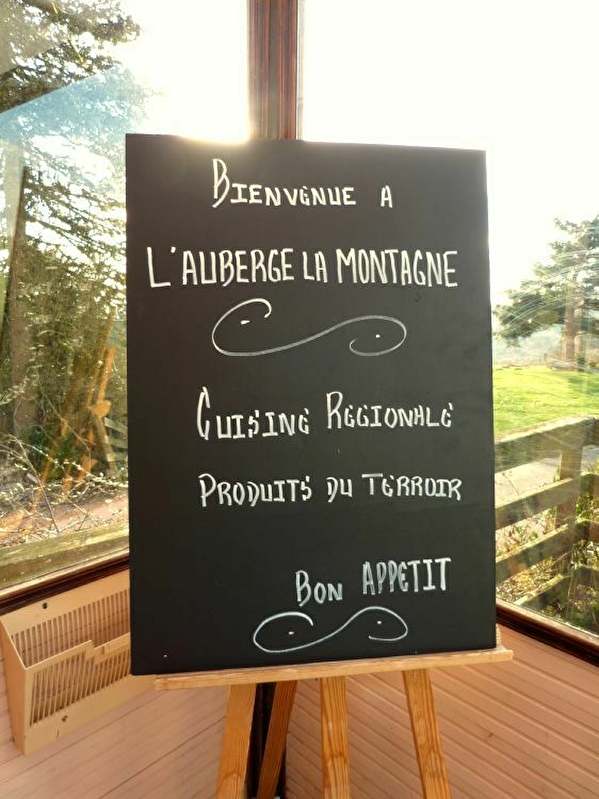 BIENVENUE A
L'AUBERGE LA MONTAGNE
CUISINE REGIONALE
PRODUITS DU TERROIR
BON APPETIT